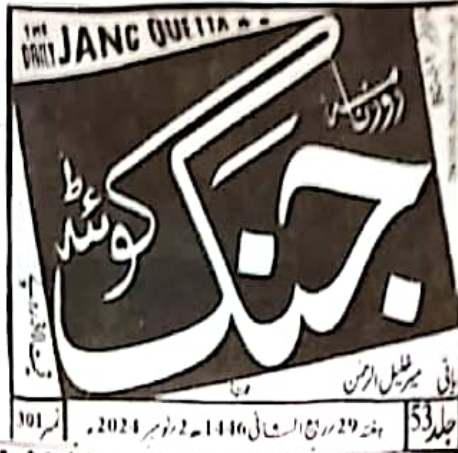 THE DAILY JANG QUETTA
روزنامہ
جنگ
کوئٹہ
بانی میر خلیل الرحمن
جلد 53 ہفتہ 29 ربیع الثانی 1446ھ 2 نومبر 2024ء نمبر 301